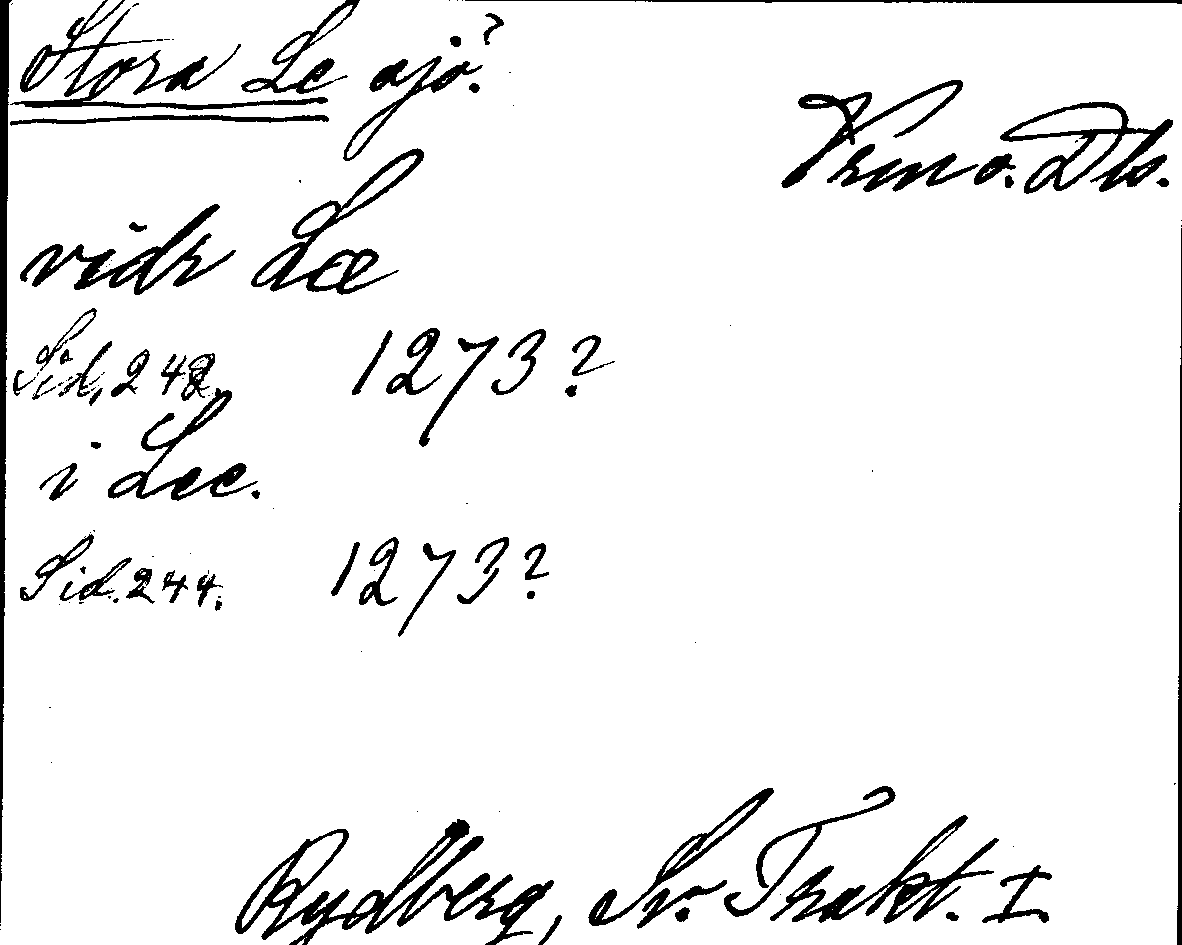 Stora Le sjö?
Vrml o. Dls.
vidr Læ
Sid. 242. 1273?
i Lee.
Sid. 244. 1273?
Rydberg, Sv. Trakt. I.